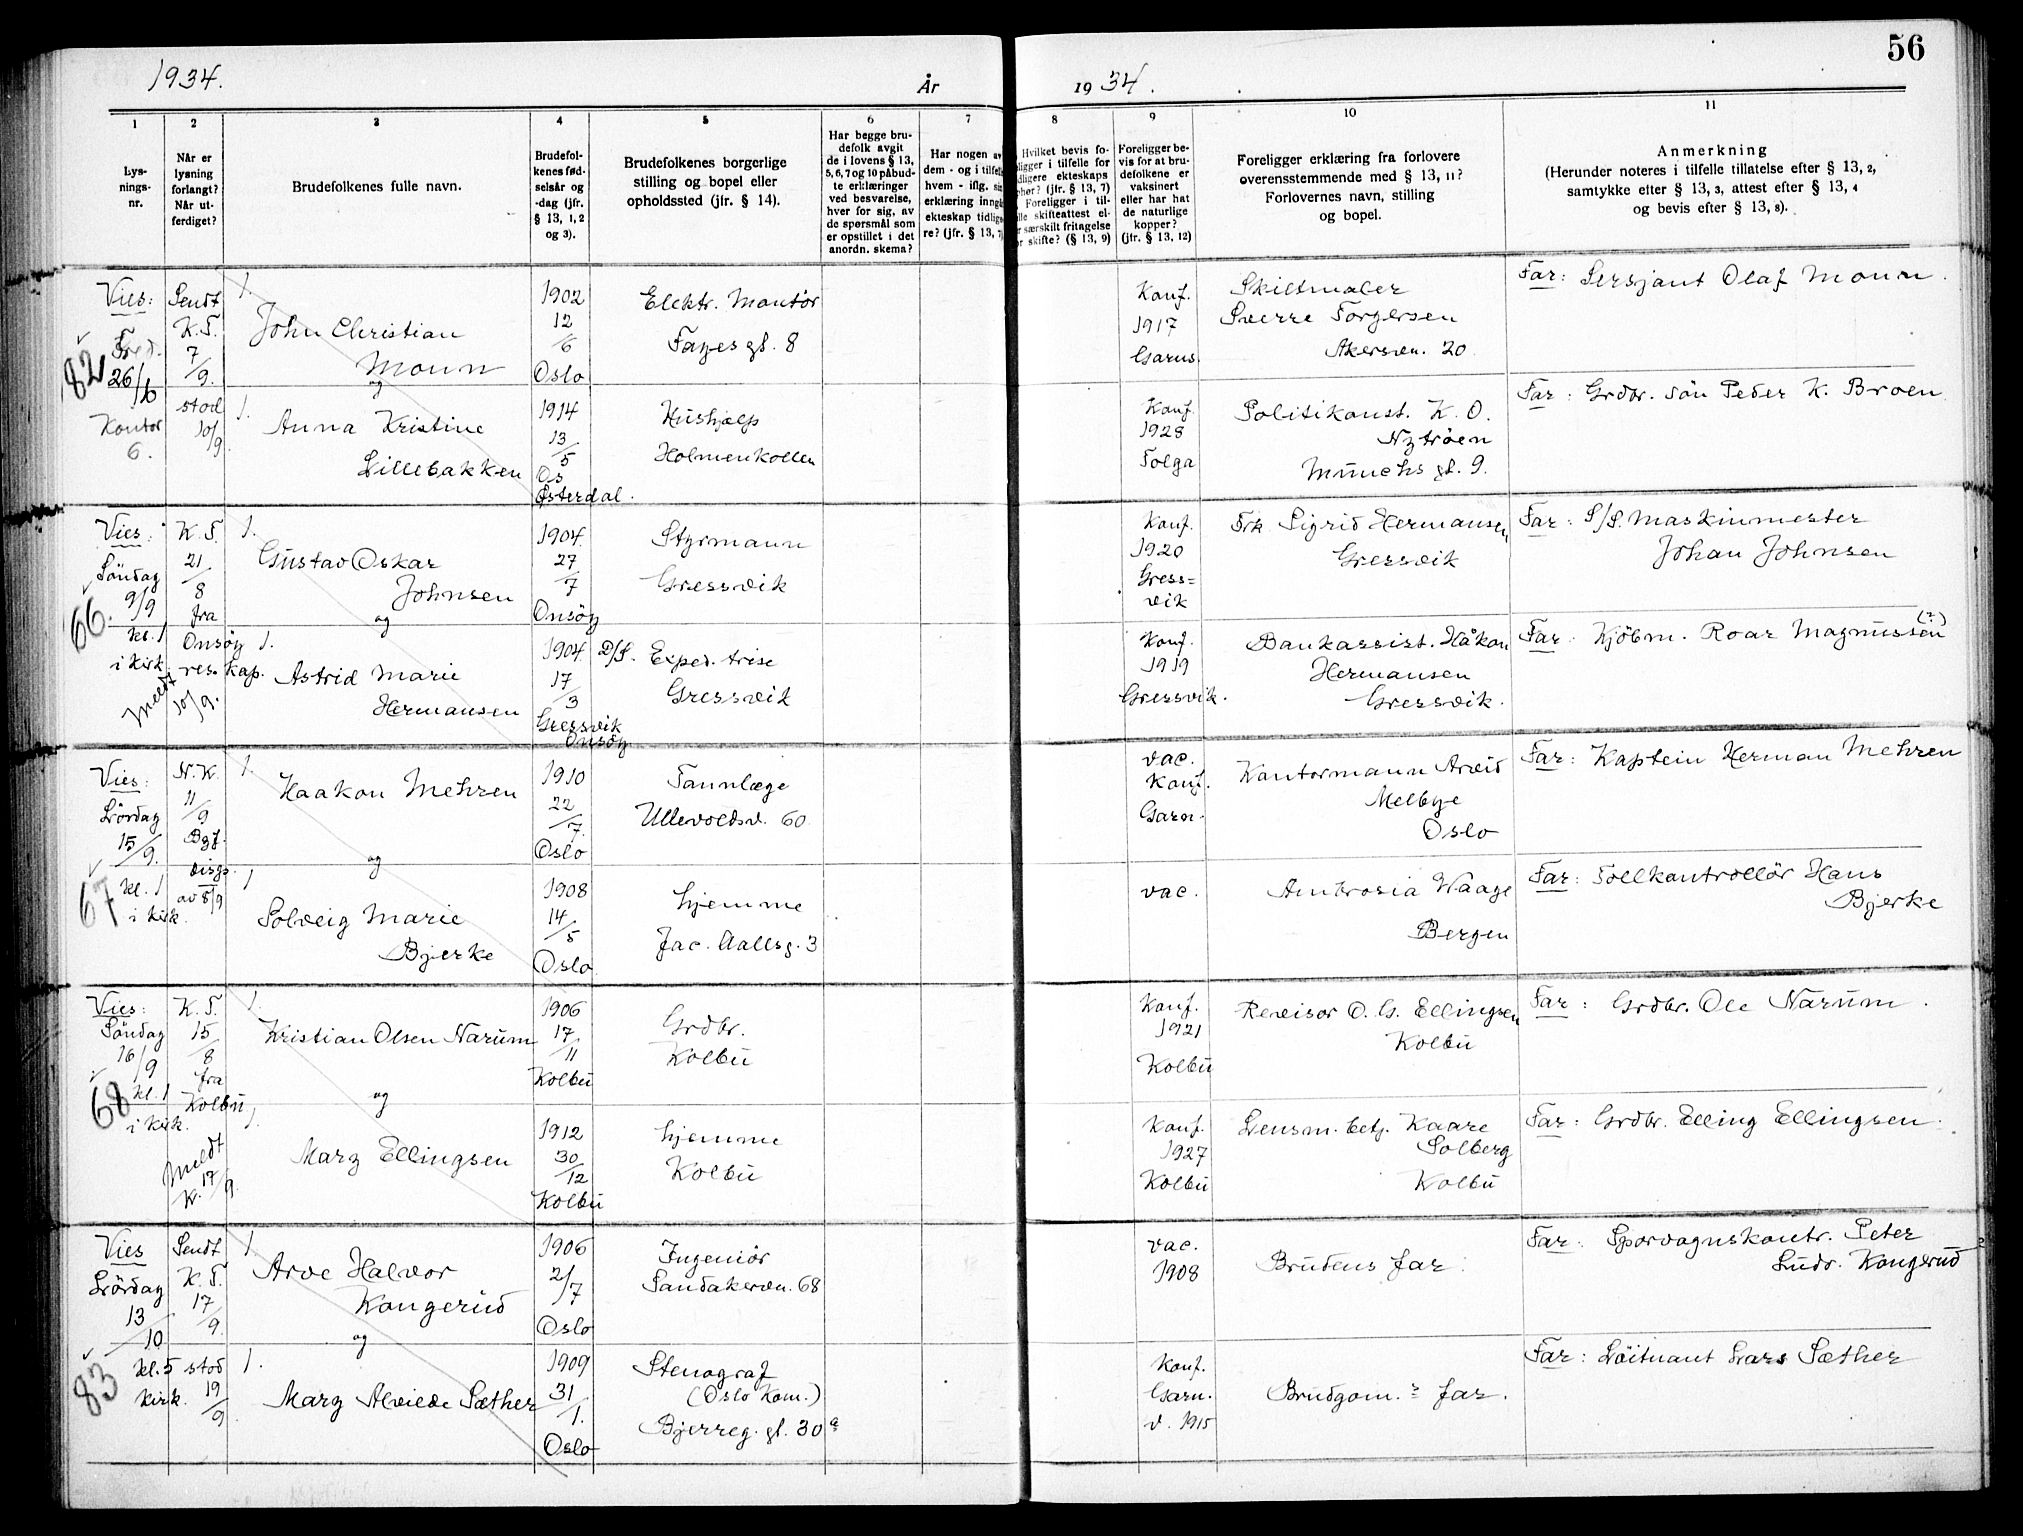 56
1934.
År
19 34.
1
2
3
4
5
6
7
8
9
10
11
Lys-
nings-
nr.
Når er
lysning
forlangt?
Når ut-
ferdiget?
Brudefolkenes fulle navn.
Brudefol-
kenes fød-
selsår og
-dag (jfr.
§ 13, 1, 2
og 3).
Brudefolkenes borgerlige
stilling og bopel eller
opholdssted (jfr. § 14).
Har begge bru-
defolk avgit
de i lovens § 13,
5, 6, 7 og 10 påbud-
te erklæringer
ved besvarelse,
hver for sig, av
de spørsmål som
er opstillet i det
anordn. skema?
Har nogen av
dem - og i tilfelle
hvem - iflg. sin
erklæring inngått
ekteskap tidlige-
re? (jfr. § 13, 7)
Hvilket bevis fo-
religger i tilfelle for
tidligere ekteskaps
ophør? (jfr. § 13, 7)
Foreligger i til-
felle skifteattest el-
ler særskilt fritagelse
for skifte? (§ 13, 9)
Foreligger be-
vis for at bru-
defolkene er
vaksinert
eller har hat
de naturlige
kopper?
(jfr. § 13, 12)
Foreligger erklæring fra forlovere
overensstemmende med § 13, 11?
Forlovernes navn, stilling
og bopel.
Anmerkning
(Herunder noteres i tilfelle tillatelse efter § 13, 2,
samtykke efter § 13, 3, attest efter § 13, 4
og bevis efter § 13, 8).
82
Vies:
Fred.
26/10
Kontor
6.
Sendt
K.T.
7/9.
stod
10/9.
1.
John Christian
Moum
og
1902
12/6
Oslo
Elektr. Montör
Fayes gt. 8
Konf.
1917
Garns.
Skiltmaler
Sverre Torgersen
Akersvn. 20
Far: Sersjant Olaf Moum.
1.
Anna Kristine
Lillebakken
1914
13/5
Os
Østerdal.
Hushjelp
Holmenkollen
Konf.
1928
Tolga
Politikonst. K. O.
Nytröen
Munchs gt. 9.
Far: Grdbr. sön Peder K. Broen
66.
Vies:
Söndag
9/9
kl. 1
i kirk.
K. T.
21/8
fra
Onsöy
res. kap.
Meldt
10/9.
1.
Gustav Oskar
Johnsen
og
1904.
27/7
Onsöy
Styrmann
Gressvik
Konf.
1920
Gress=
vik
Frk. Sigrid Hermansen
Gressvik
Far: S/S. Maskinmester
Johan Johnsen
1.
Astrid Marie
Hermansen
1904.
17/3
Gressvik
Onsöy
D/S. Exped. trise
Gressvik
Konf.
1919
Gressvik.
Bankassist. Håkon
Hermansen
Gressvik.
Far: Kjöbm. Roar Magnussen (?)
67
Vies:
Lördag
15/9.
kl. 1
i kirk.
N. K.
11/9
Byf.
disps.
av 8/9
1.
Haakon Mehren
og
1910
22/7.
Oslo
Tannlæge
Ullevoldsv. 60
vac.
Konf.
Garn.
Kontormann Arvid
Melbye
Oslo
Far: Kaptein Herman Mehren
1
Solveig Marie
Bjerke
1908
14/5
Oslo
hjemme
Jac. Aallsg. 3
vac.
Ambrosia Waage
Bergen
Far: Tollkontrollör Hans
Bjerke
68
Vies:
Söndag
16/9
kl. 1
i kirk.
K. T.
15/8
fra
Kolbu
Meldt
K. 17/9.
1.
Kristian Olsen Narum
og
1906
17/11
Kolbu
Grdbr.
Kolbu
Konf.
1921
Kolbu
Revisor O. G. Ellingsen
Kolbu
Far: Grdbr. Ole Narum.
1.
Mary Ellingsen
1912
30/12
Kolbu
hjemme
Kolbu
Konf.
1927
Kolbu
Lensm. betj. Kaare
Solberg
Kolbu
Far: Grdbr. Elling Ellingsen.
83
Vies
Lördag
13/10
kl. 5
kirk.
Sendt
K. T.
17/9.
stod
19/9
1
Arve Halvor
Kongerud
og
1906
2/7
Oslo
Ingeniör
Sandakervn. 68
vac.
1908
Brudens far.
Far: Sporvognskontr. Peter
Ludv. Kongerud
1.
Mary Alvilde Sæther
1909
31/1.
Oslo
Stenograf
(Oslo Kom.)
Bjerreg. gt. 30 a
Konf.
Garn.
v. 1915
Brudgom.s far.
Far: Löitnant Lars Sæther